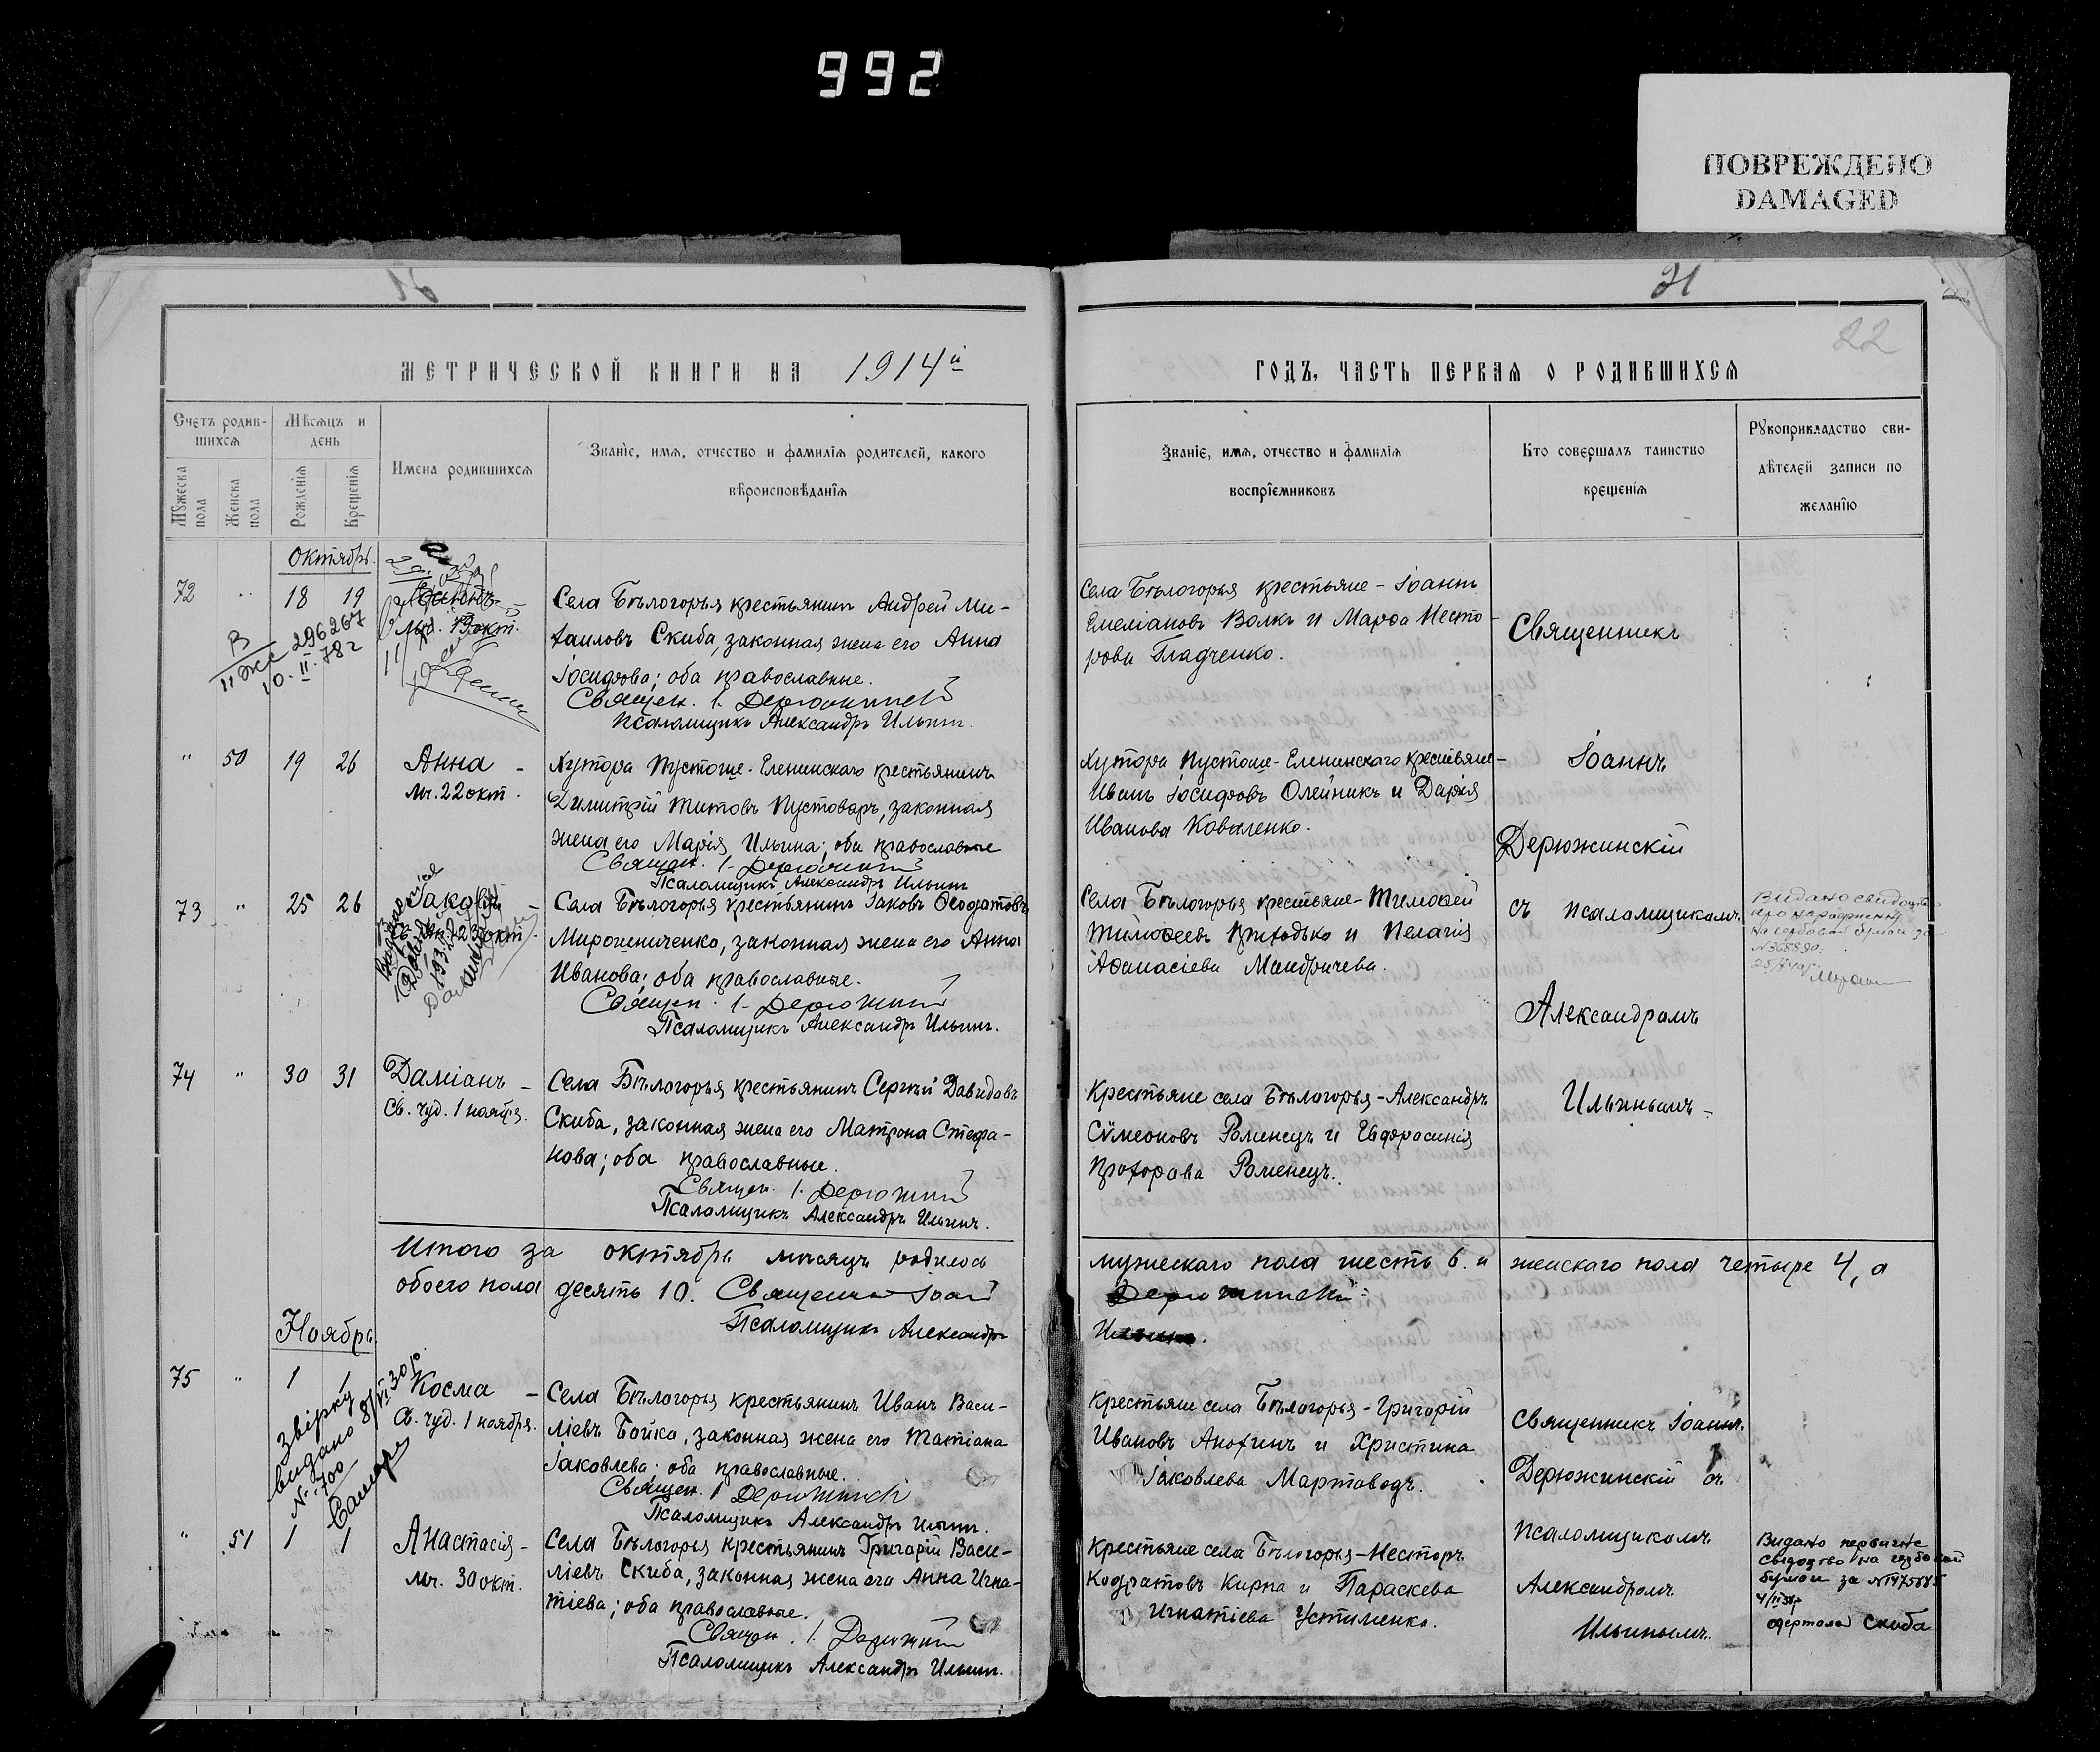 992
ПОВРЕЖДЕНО
DAMAGED
21
22
МЕТРИЧЕСКОЙ КНИГИ НА 1914й
ГОДЪ, ЧАСТЬ ПЕРВАЯ О РОДИВШИХСЯ
Счетъ родив-
шихся
Мужеска пола
Женска пола
Мѣсяцъ и
день
Рожденія
Крещенія
Имена родившихся
Званіе, имя, отчество и фамилія родителей, какого
вѣроисповѣданія
Званіе, имя, отчество и фамилія
воспріемниковъ
Кто совершалъ таинство
крещенія
Рукоприкладство сви-
дѣтелей записи по
желанію
Октябрь.
72 " 18 19
Села Бѣлогорья крестьянинъ Андрей Ми-
хаиловъ Скиба, законная жена его Анна
Іосифова; оба православные.
Священ. І. Дерюжинскій
Псаломщикъ Александръ Ильинъ.
Села Бѣлогорья крестьяне - Іоаннъ
Емеліановъ Волкъ и Марѳа Несто-
рова Гладченко.
Священникъ
296267
10.II.78г
" 50 19 26 Анна -
мч. 22 окт.
Хутора Пустоше-Еленинскаго крестьянинъ
Димитрій Титовъ Пустоваръ, законная
жена его Марія Ильина; оба православные
Священ. І. Дерюжинскій
Псаломщикъ Александръ Ильинъ
Хутора Пустоше-Еленинскаго крестьяне -
Иванъ Іосифовъ Олейникъ и Дарія
Иванова Коваленко.
Іоаннъ
Дерюжинскій
73 " 25 26 Іаковъ -
23 окт.
Села Бѣлогорья крестьянинъ Іаковъ Ѳеодотовъ
Мирошниченко, законная жена его Анна
Иванова; оба православные.
Священ. І. Дерюжинскій
Псаломщикъ Александръ Ильинъ.
Села Бѣлогорья крестьяне - Тимоѳей
Тимоѳеевъ Приходько и Пелагія
Аѳанасіева Мандричева.
съ псаломщикомъ
Александромъ
Видано свидоцтво
про народження
№ 368890
74 " 30 31 Даміанъ -
Св. чуд. 1 ноября.
Села Бѣлогорья крестьянинъ Сергѣй Давидовъ
Скиба, законная жена его Матрона Стефа-
нова; оба православные.
Священ. І. Дерюжинскій
Псаломщикъ Александръ Ильинъ.
Крестьяне села Бѣлогорья - Александръ
Сѵмеоновъ Роменецъ и Евфросинія
Прохорова Роменецъ.
Ильинымъ -
Итого за октябрь мѣсяцъ родилось мужескаго пола шесть 6. и женскаго пола четыре 4, а
обоего пола десять 10. Священникъ Іоаннъ Дерюжинскій
Псаломщикъ Александръ Ильинъ.
Ноябрь
75 " 1 1 Косма -
Св. чуд. 1 ноября.
Звірку
видано 8/VI 30 р.
№ 700
Села Бѣлогорья крестьянинъ Иванъ Васи-
ліевъ Бойко, законная жена его Татіана
Іаковлева; оба православные.
Священ. І. Дерюжинскій
Псаломщикъ Александръ Ильинъ.
Крестьяне села Бѣлогорья - Григорій
Ивановъ Анохинъ и Христина
Іаковлева Мартоводъ.
Священникъ Іоаннъ
Дерюжинскій съ
" 51 1 1 Анастасія -
мч. 30 окт.
Села Бѣлогорья крестьянинъ Григорій Васи-
ліевъ Скиба, законная жена его Анна Игна-
тіева; оба православные.
Священ. І. Дерюжинскій
Псаломщикъ Александръ Ильинъ.
Крестьяне села Бѣлогорья - Несторъ
Кодратовъ Кирпа и Параскева
Игнатіева Устименко.
псаломщикомъ
Александромъ
Ильинымъ.
Видано первичне
свидоцтво на гербовой
бумаги за №
одержала Скиба